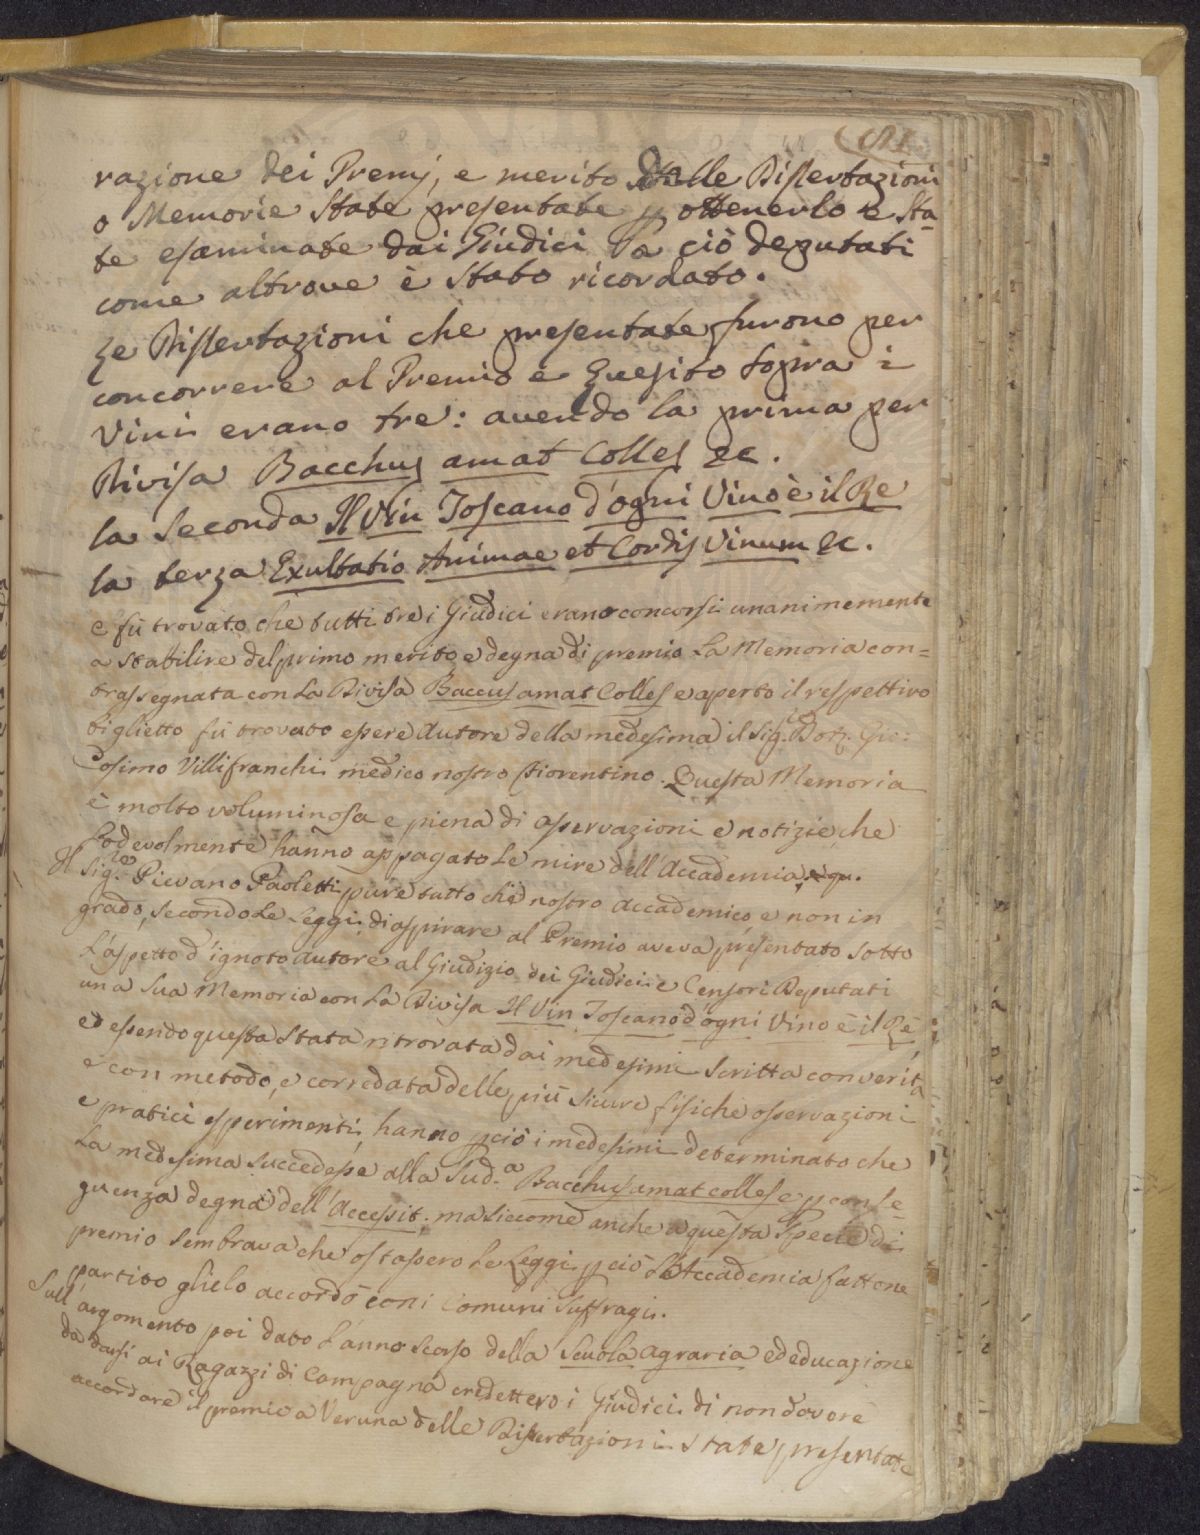 razione dei Premj, e merito delle Dissertazioni
o Memorie state presentate p ottenerlo e sta-
te esaminate dai Giudici a ciò deputati
come altrove è stato ricordato.
Le Dissertazioni che presentate furono per
concorrere al Premio e Quesito sopra i
Vini erano tre: avendo la prima per
Divisa Bacchus amat Colles &c.
la seconda Il Vin Toscano d'ogni Vino è il Re
la terza Exultatio Animae et Cordis Vinum &c.
e fù trovato che tutti tre i Giudici erano concorsi unanimemente
a stabilire del primo merito e degna di premio La Memoria con=
trassegnata con La Divisa Baccus amat Colles e aperto il respettivo
biglietto fù trovato essere Autore della medesima il Sig. Dott. Gio:
Cosimo Villifranchi medico nostro Fiorentino. Questa Memoria
è molto voluminosa e piena di osservazioni e notizie, che
Lodevolmente hanno appagato Le mire dell'Accademia
Il Sig.re Pievano Paoletti pure tutto che nostro Accademico e non in
grado, secondo Le Leggi, di aspirare al Premio aveva presentato sotto
L'aspetto d'ignoto Autore al Giudizio dei Giudici e Censori Deputati
una Sua Memoria con La Divisa Il Vin Toscano d'ogni Vino è il Rè
ed essendo questa stata ritrovata dai medesimi scritta con verità
e con metodo, e corredata delle più sicure fisiche osservazioni
e pratici esperimenti, hanno pciò i medesimi determinato che
La medesima succedesse alla Sud.a Bacchus amat colles e p conse-
guenza degna dell'Accessit. ma siccome anche a questa Specie di
premio sembrava che ostassero Le Leggi pciò L'Accademia fattone
partito glielo accordò con i Comuni Suffragi.
Sull'argomento poi dato L'anno scorso della Scuola Agraria ed educazione
da darsi ai Ragazzi di Campagna credettero i Giudici di non dovere
accordare il premio a Veruna delle Dissertazioni state presentate